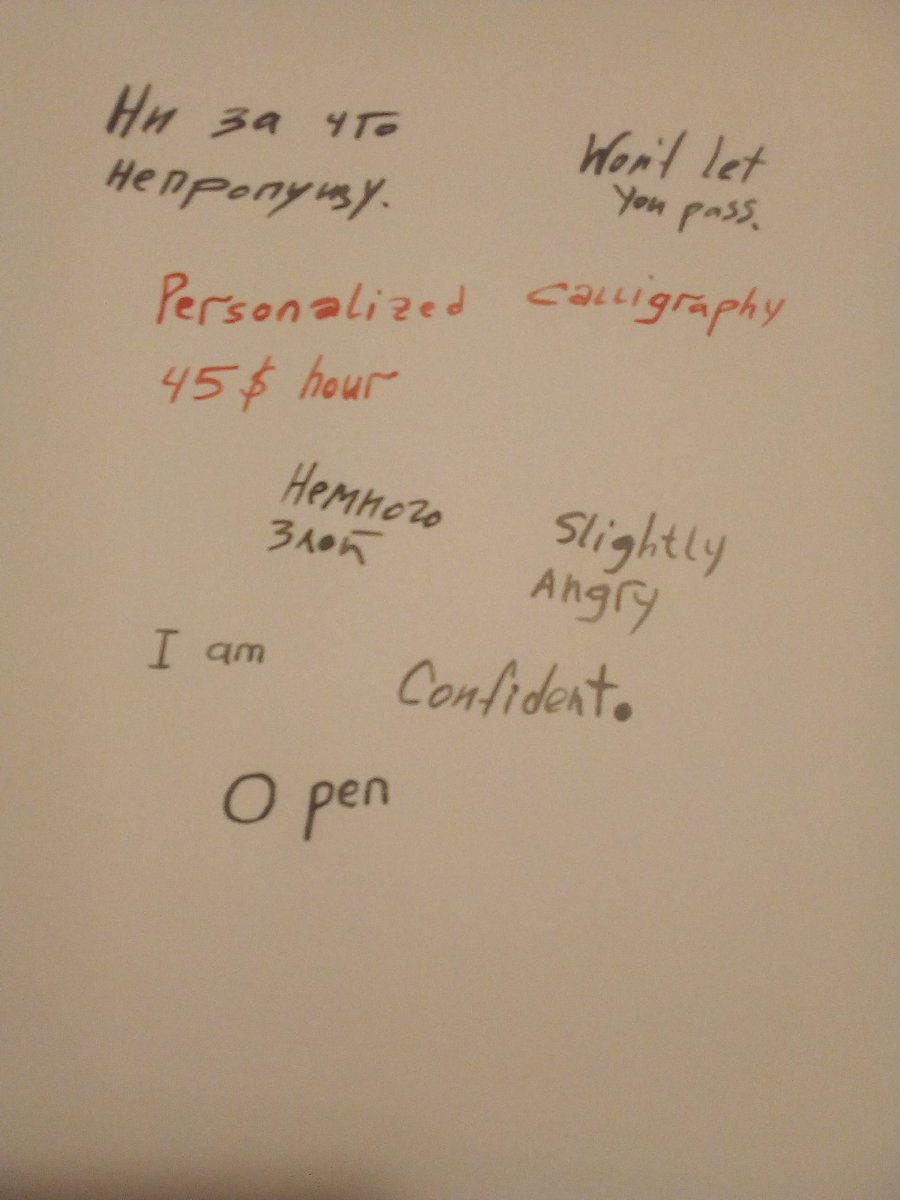 Ни за что
непропущу.
Won't let
you pass.
Personalized calligraphy
45$ hour
Немного
Злой
Slightly
Angry
I am
Confident.
Open